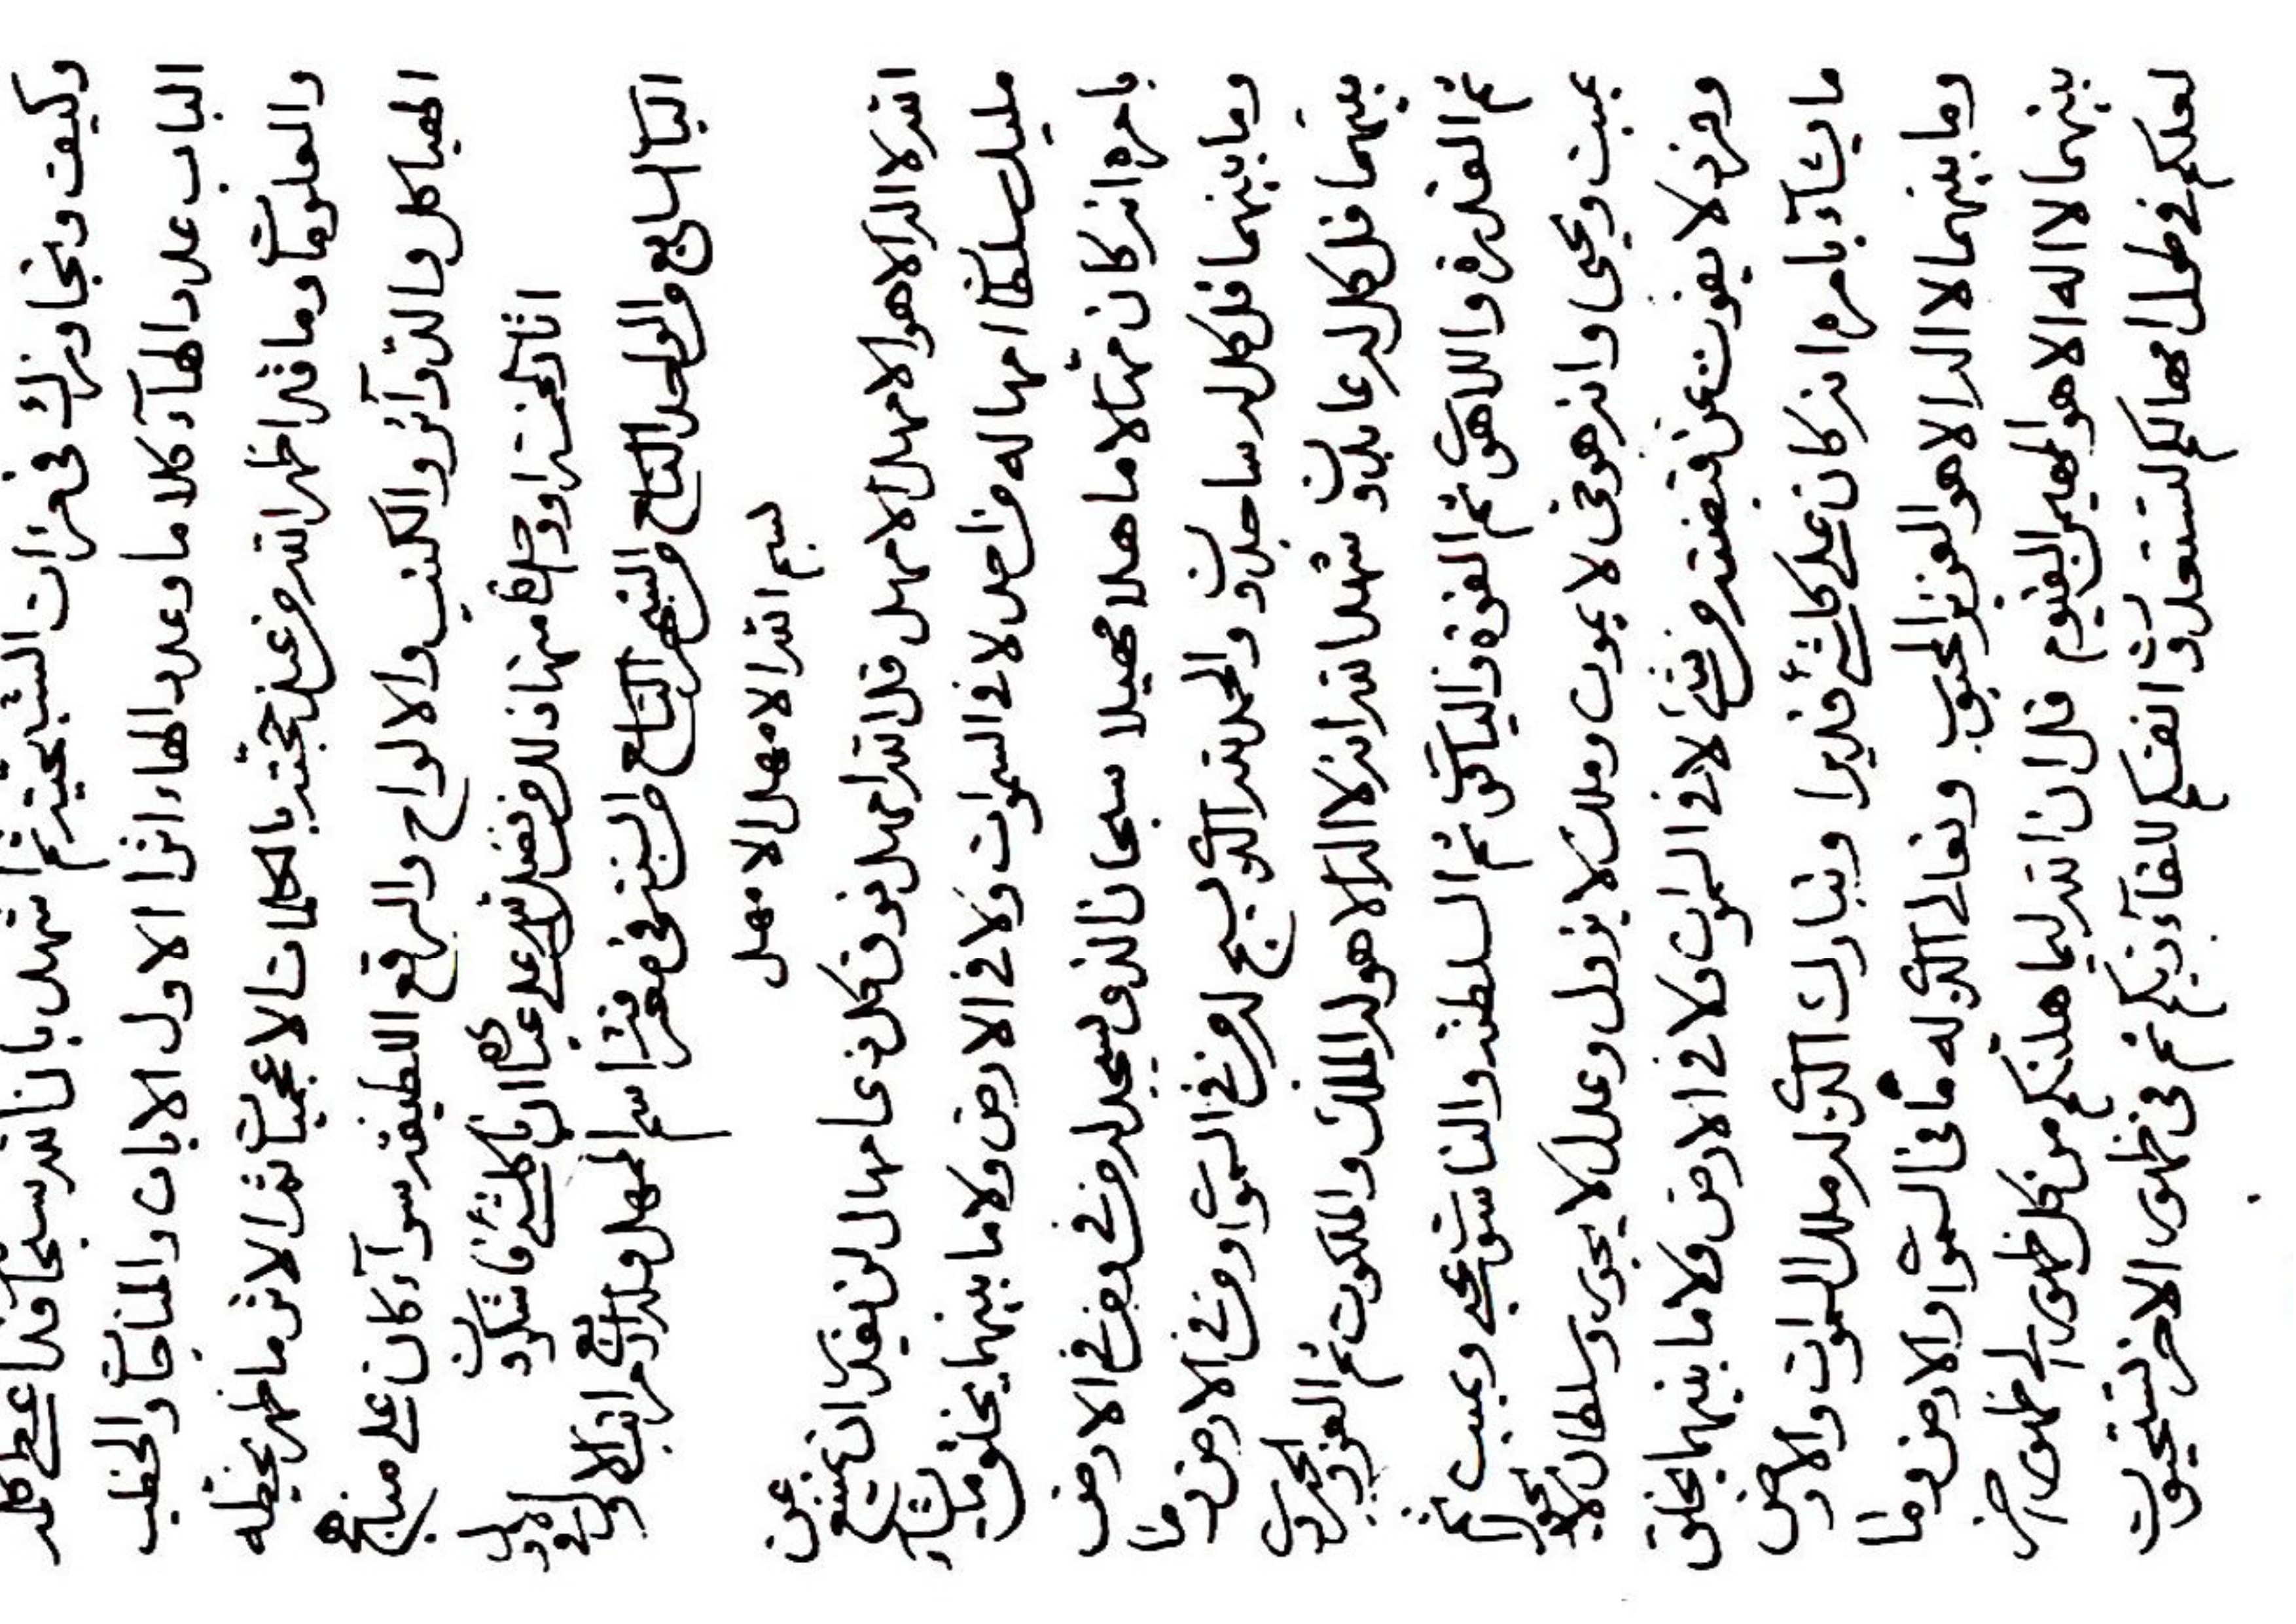 وكيف وتجاوزك في غرات الشبحية ثم اشهد بان الله سبحا قد اعطى كله
الباب عدد الهاء كلا ما وعدد الهاء اثرا الاول الايات والمناجا والخطب
والعلوما وما قد اظهر الله من عند حجته بالكلمات الاعجميا ثمرا الاثر ما ظهر بخطه
الهياكل والدوآئر والكتب والالواح والرقع اللطيفة سوآء كان على
منها
الباب السابع والواحد التاسع والشهر التاسع والسنة في معرفة اسم الممهد وله اربع مراتب الاول في الاول
بسم الله الامهد الامهد
الله لا اله الا هو الامهد الامهد قل الله امهد فوق كل ذي امهاد لن يقدر ان يمتنع عن
مليك سلطان امهاده من احد لا في السموات ولا في الارض ولا ما بينهما يخلق ما يشآء
بامره انه كان مهادا ماهدا مهيدا سبحان الذي يسجد له من في ومن في الارض
وما بينهما قل كل له ساجدون والحمد لله الذي يسبح له من في السموا ومن في الارض وما
بينهما قل كل له عابدون شهد الله انه لا اله الا هو له الملك والملكوت ثم العز والجبروت
ثم القدرة واللاهوت ثم القوة والياقوت ثم السلطنة والناسوت يحيي ويميت ثم
يميت ويحيي وانه هو حي لا يموت وملك لا يزول وعدل لا يجور وسلطان لا يحول
وفرد لا يفوت عن قبضته من شئ لا في السموات ولا في الارض ولا ما بينهما يخلق
ما يشآء بامره انه كان على كلشئ قديرا وتبارك الذي له ملك السموات والارض
وما بينهما لا اله الا هو العزيز المحبوب وتعالى الذي له ما في السموا والارض وما
بينهما لا اله الا هو المهيمن القيوم قل ان الله ليماهدنكم من كل ظهور الى ظهور اخر
لعلكم في ظهور امهادكم لتستعدون انفسكم للقآء ربكم ثم في ظهور الاخر لتنتجيون